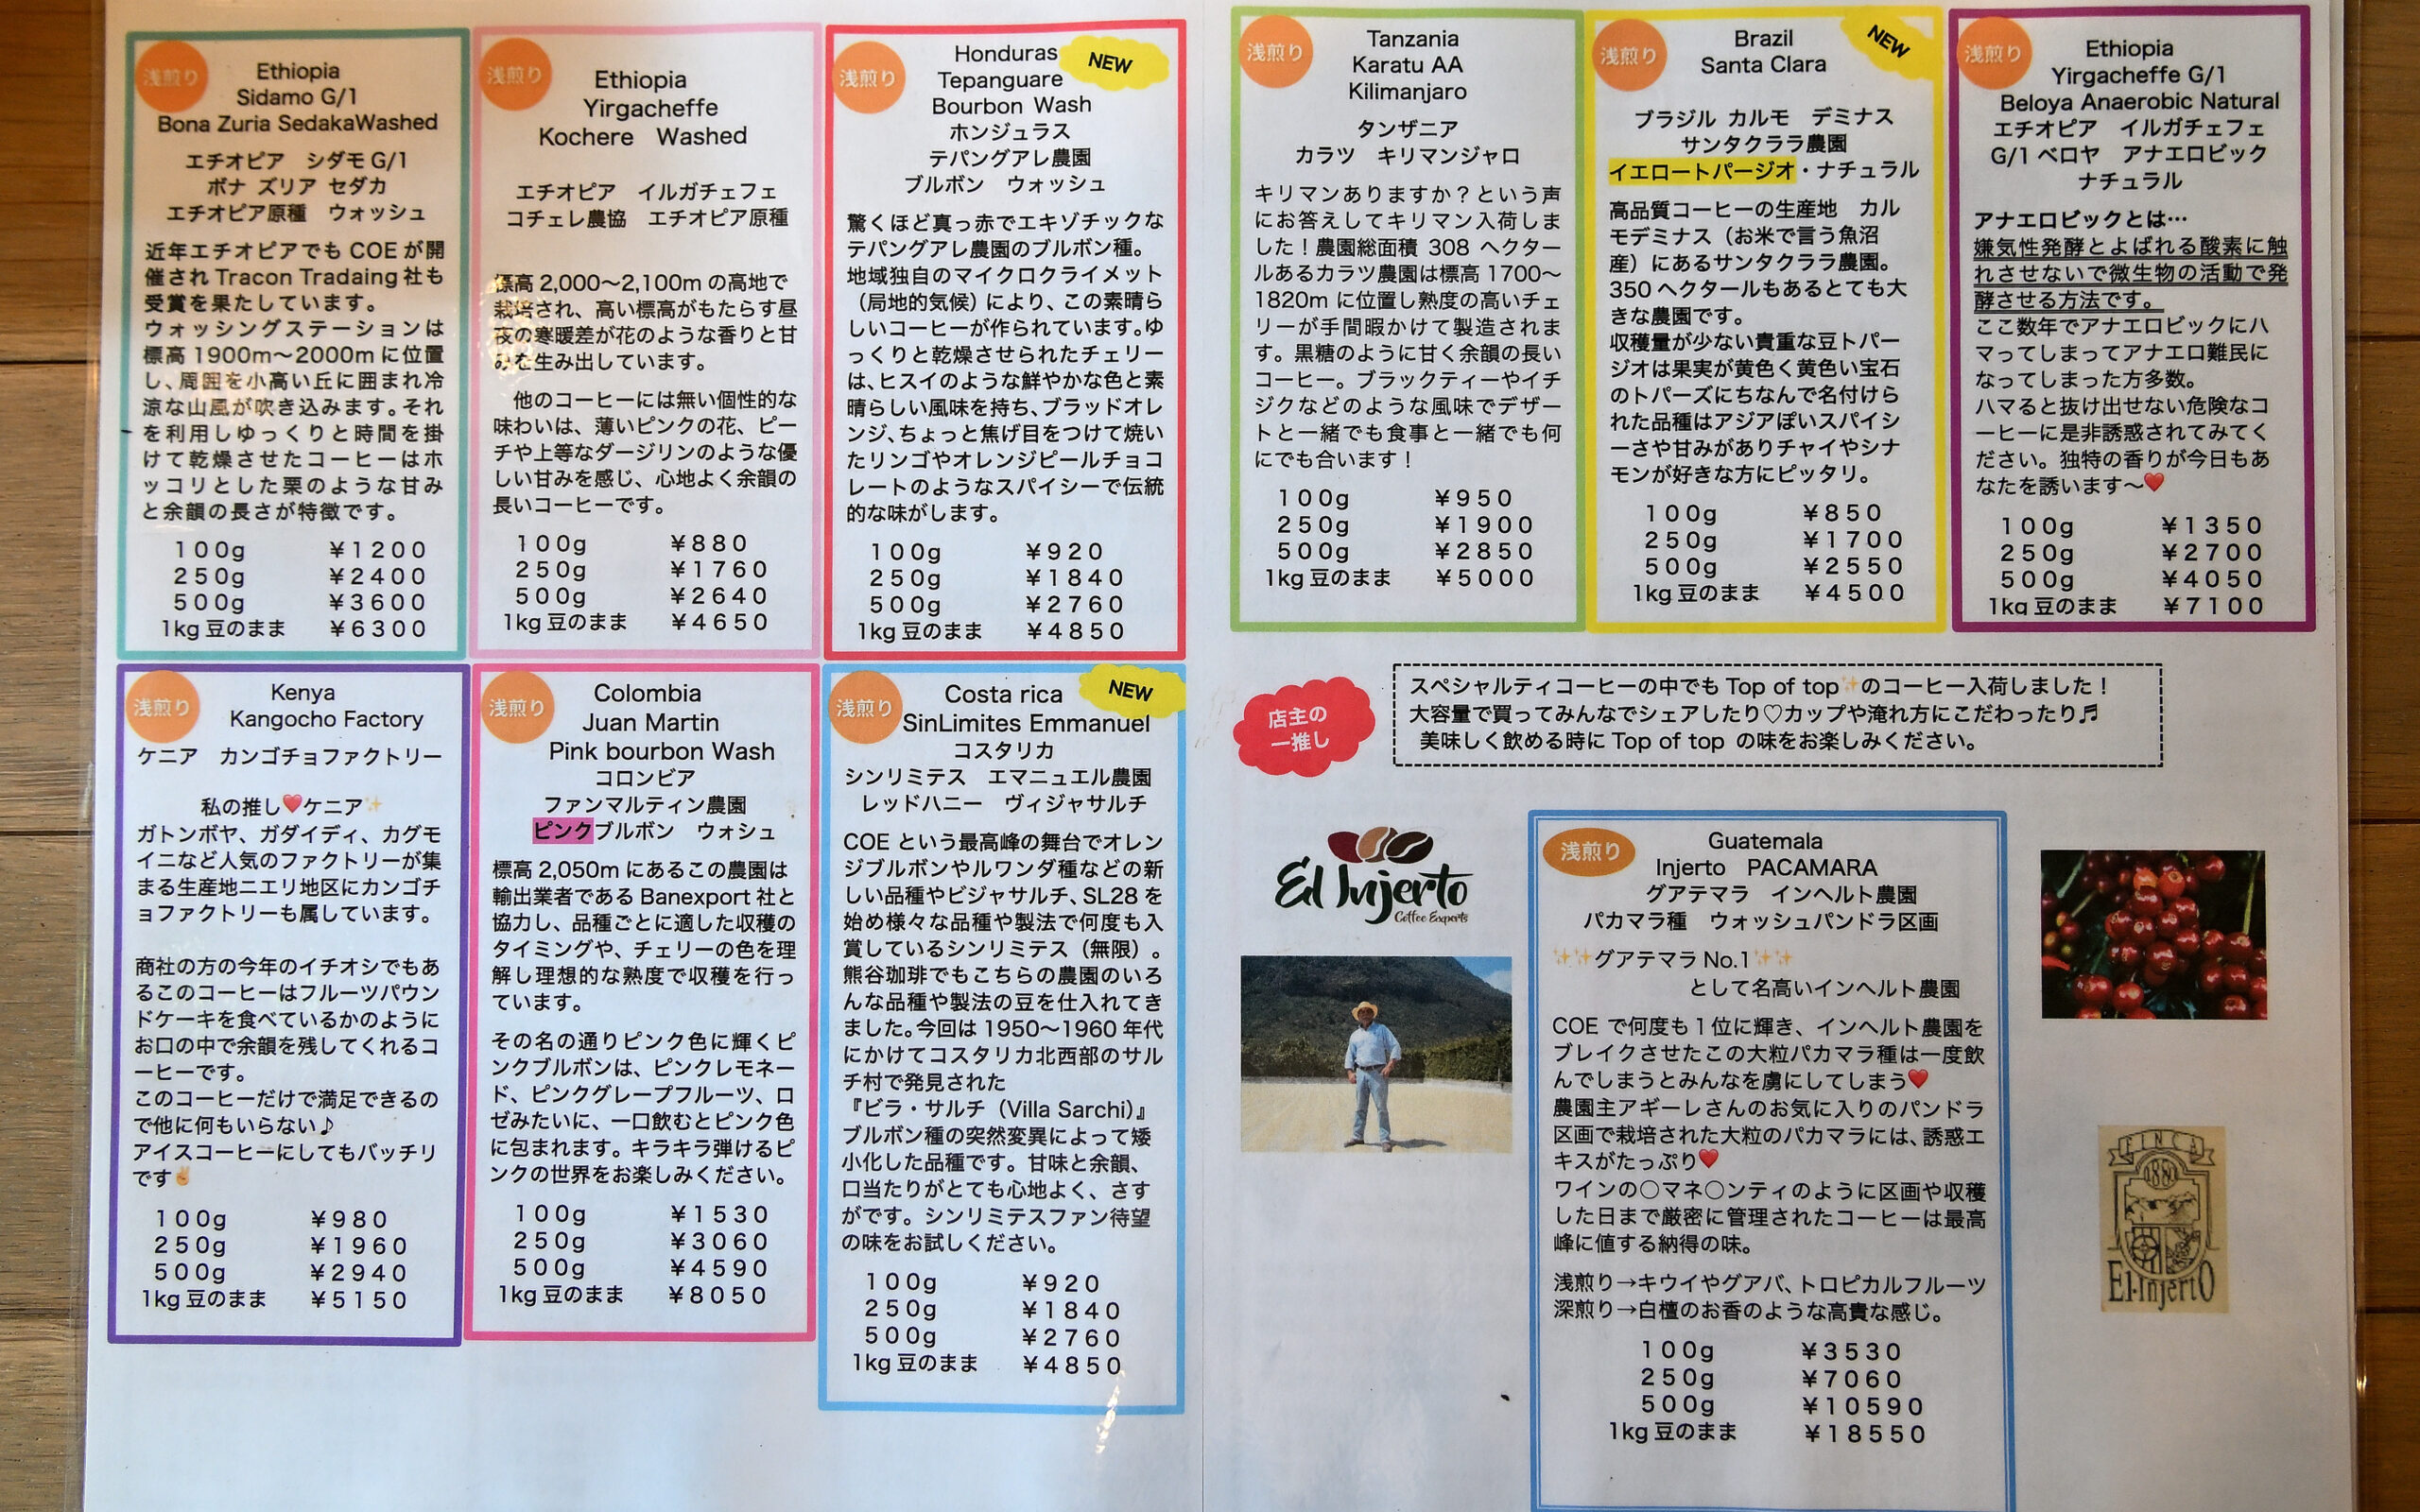 浅煎り
Ethiopia
Sidamo G/1
Bona Zuria SedakaWashed
エチオピア　シダモ G/1
ボナ ズリア セダカ
エチオピア原種　ウォッシュ
近年エチオピアでも COE が開
催され Tracon Tradaing 社も
受賞を果たしています。
ウォッシングステーションは
標高 1900m〜2000m に位置
し、周囲を小高い丘に囲まれ冷
涼な山風が吹き込みます。それ
を利用しゆっくりと時間を掛
けて乾燥させたコーヒーはホ
ッコリとした栗のような甘み
と余韻の長さが特徴です。
100g ¥1200
250g ¥2400
500g ¥3600
1kg 豆のまま ¥6300
浅煎り
Ethiopia
Yirgacheffe
Kochere　Washed
エチオピア　イルガチェフェ
コチェレ農協　エチオピア原種
標高 2,000〜2,100m の高地で
栽培され、高い標高がもたらす昼
夜の寒暖差が花のような香りと甘
みを生み出しています。
他のコーヒーには無い個性的な
味わいは、薄いピンクの花、ピー
チや上等なダージリンのような優
しい甘みを感じ、心地よく余韻の
長いコーヒーです。
100g ¥880
250g ¥1760
500g ¥2640
1kg 豆のまま ¥4650
浅煎り
NEW
Honduras
Tepanguare
Bourbon Wash
ホンジュラス
テパングアレ農園
ブルボン　ウォッシュ
驚くほど真っ赤でエキゾチックな
テパングアレ農園のブルボン種。
地域独自のマイクロクライメット
（局地的気候）により、この素晴ら
しいコーヒーが作られています。ゆ
っくりと乾燥させられたチェリー
は、ヒスイのような鮮やかな色と素
晴らしい風味を持ち、ブラッドオレ
ンジ、ちょっと焦げ目をつけて焼い
たリンゴやオレンジピールチョコ
レートのようなスパイシーで伝統
的な味がします。
100g ¥920
250g ¥1840
500g ¥2760
1kg 豆のまま ¥4850
浅煎り
Kenya
Kangocho Factory
ケニア　カンゴチョファクトリー
私の推し❤️ケニア✨
ガトンボヤ、ガダイディ、カグモ
イニなど人気のファクトリーが集
まる生産地ニエリ地区にカンゴチ
ョファクトリーも属しています。
商社の方の今年のイチオシでもあ
るこのコーヒーはフルーツパウン
ドケーキを食べているかのように
お口の中で余韻を残してくれるコ
ーヒーです。
このコーヒーだけで満足できるの
で他に何もいらない♪
アイスコーヒーにしてもバッチリ
です✌️
100g ¥980
250g ¥1960
500g ¥2940
1kg 豆のまま ¥5150
浅煎り
Colombia
Juan Martin
Pink bourbon Wash
コロンビア
ファンマルティン農園
ピンクブルボン　ウォシュ
標高 2,050m にあるこの農園は
輸出業者である Banexport 社と
協力し、品種ごとに適した収穫の
タイミングや、チェリーの色を理
解し理想的な熟度で収穫を行っ
ています。
その名の通りピンク色に輝くピ
ンクブルボンは、ピンクレモネー
ド、ピンクグレープフルーツ、ロ
ゼみたいに、一口飲むとピンク色
に包まれます。キラキラ弾けるピ
ンクの世界をお楽しみください。
100g ¥1530
250g ¥3060
500g ¥4590
1kg 豆のまま ¥8050
浅煎り
NEW
Costa rica
SinLimites Emmanuel
コスタリカ
シンリミテス　エマニュエル農園
レッドハニー　ヴィジャサルチ
COE という最高峰の舞台でオレン
ジブルボンやルワンダ種などの新
しい品種やビジャサルチ、SL28 を
始め様々な品種や製法で何度も入
賞しているシンリミテス（無限）。
熊谷珈琲でもこちらの農園のいろ
んな品種や製法の豆を仕入れてき
ました。今回は 1950〜1960 年代
にかけてコスタリカ北西部のサル
チ村で発見された
『ビラ・サルチ（Villa Sarchi）』
ブルボン種の突然変異によって矮
小化した品種です。甘味と余韻、
口当たりがとても心地よく、さす
がです。シンリミテスファン待望
の味をお試しください。
100g ¥920
250g ¥1840
500g ¥2760
1kg 豆のまま ¥4850
浅煎り
Tanzania
Karatu AA
Kilimanjaro
タンザニア
カラツ　キリマンジャロ
キリマンありますか？という声
にお答えしてキリマン入荷しま
した！農園総面積 308 ヘクター
ルあるカラツ農園は標高 1700〜
1820m に位置し熟度の高いチェ
リーが手間暇かけて製造されま
す。黒糖のように甘く余韻の長い
コーヒー。ブラックティーやイチ
ジクなどのような風味でデザー
トと一緒でも食事と一緒でも何
にでも合います！
100g ¥950
250g ¥1900
500g ¥2850
1kg 豆のまま ¥5000
浅煎り
NEW
Brazil
Santa Clara
ブラジル カルモ　デミナス
サンタクララ農園
イエロートパージオ・ナチュラル
高品質コーヒーの生産地　カル
モデミナス（お米で言う魚沼
産）にあるサンタクララ農園。
350 ヘクタールもあるとても大
きな農園です。
収穫量が少ない貴重な豆トパー
ジオは果実が黄色く黄色い宝石
のトパーズにちなんで名付けら
れた品種はアジアぽいスパイシ
ーさや甘みがありチャイやシナ
モンが好きな方にピッタリ。
100g ¥850
250g ¥1700
500g ¥2550
1kg 豆のまま ¥4500
浅煎り
Ethiopia
Yirgacheffe G/1
Beloya Anaerobic Natural
エチオピア　イルガチェフェ
G/1 ベロヤ　アナエロビック
ナチュラル
アナエロビックとは…
嫌気性発酵とよばれる酸素に触
れさせないで微生物の活動で発
酵させる方法です。
ここ数年でアナエロビックにハ
マってしまってアナエロ難民に
なってしまった方多数。
ハマると抜け出せない危険なコ
ーヒーに是非誘惑されてみてく
ださい。独特の香りが今日もあ
なたを誘います〜❤️
100g ¥1350
250g ¥2700
500g ¥4050
1kg 豆のまま ¥7100
店主の
一推し
スペシャルティコーヒーの中でも Top of top✨のコーヒー入荷しました！
大容量で買ってみんなでシェアしたり♡カップや淹れ方にこだわったり♬
美味しく飲める時に Top of top の味をお楽しみください。
El Injerto
Coffee Experts
浅煎り
Guatemala
Injerto　PACAMARA
グアテマラ　インヘルト農園
パカマラ種　ウォッシュパンドラ区画
✨✨グアテマラ No.1✨✨
として名高いインヘルト農園
COE で何度も 1 位に輝き、インヘルト農園を
ブレイクさせたこの大粒パカマラ種は一度飲
んでしまうとみんなを虜にしてしまう❤️
農園主アギーレさんのお気に入りのパンドラ
区画で栽培された大粒のパカマラには、誘惑エ
キスがたっぷり❤️
ワインの○マネ○ンティのように区画や収穫
した日まで厳密に管理されたコーヒーは最高
峰に値する納得の味。
浅煎り→キウイやグアバ、トロピカルフルーツ
深煎り→白檀のお香のような高貴な感じ。
100g ¥3530
250g ¥7060
500g ¥10590
1kg 豆のまま ¥18550
FINCA
El·InjertO